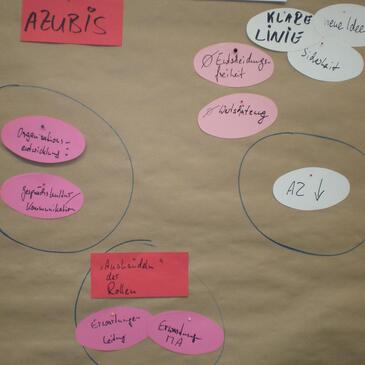 AZUBIS
KLARE
LINIE
neue Idee
Sicherheit
Ø Entscheidungs-
freiheit
Organisations-
entwicklung:
Gesprächskultur/
Kommunikation
AZ ↓
"Aushandeln"
der
Rollen
Erwartungen
Leitung
Erwartung
MA